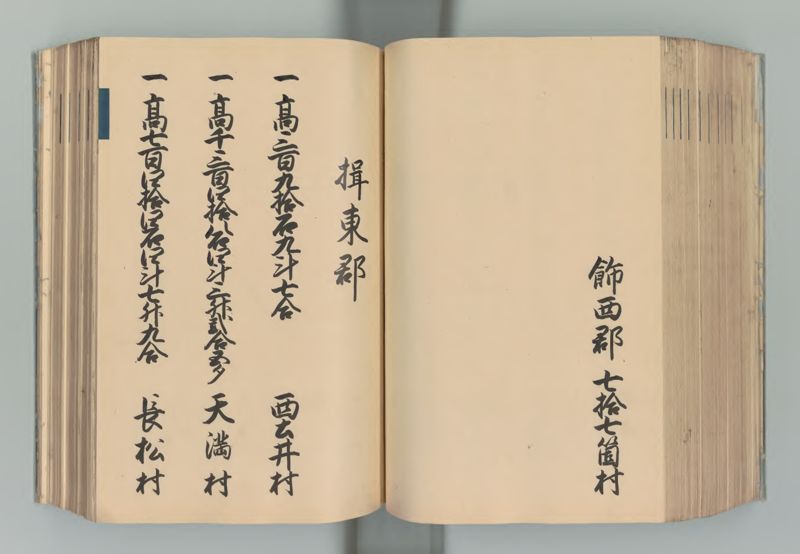 飾西郡 七拾七箇村
揖東郡
一 高三百九拾石九斗七合 西土井村
一 高千三百四拾八石四斗三升弐合五夕 天満村
一 高七百四拾四石四斗七升九合 長松村